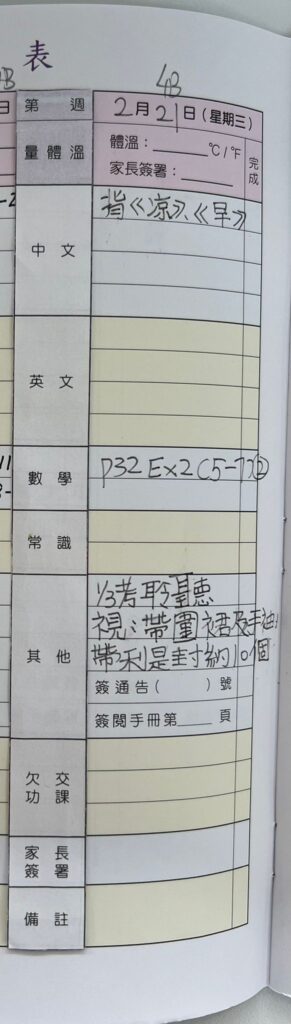 表
4B
第 週
2月21日(星期三)
量體溫
體溫：______℃/℉
家長簽署：______
完成
中文
背《凉》、《早》
英文
數學
P32 Ex2C5-7)②
常識
其他
1/3考聆聽
視：帶圍裙及手袖
帶利是封約10個
簽通告( )號
簽閱手冊第____頁
欠交
功課
家長
簽署
備註